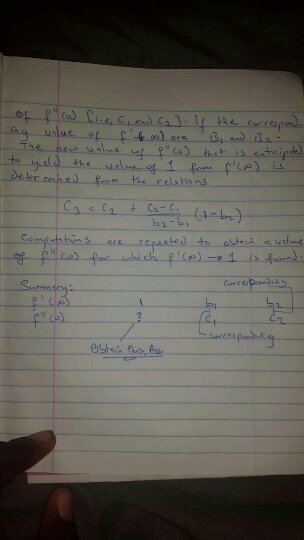 of f"(0) [i.e, C1 and C2]. If the correspond-
ing value of f'(∞) are B1 and B2.
The new value of f"(0) that is anticipated
to yield the value of 1 from f'(∞) is
determined from the relations
C3 = C2 + (C2-C1)/(b2-b1) (1-b2)
Computations are repeated to obtain a value
of f"(0) for which f'(∞) → 1 is found.
corresponding
Summary:
f'(∞) 1 b1 b2
f"(0) ? C1 C2
corresponding
Obtain this, Assn